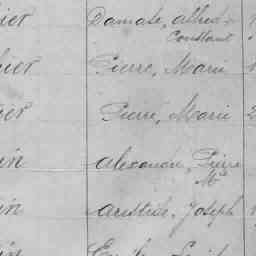 ier Damase, Alfred
Constant
hier Pierre, Marie
ier Pierre, Marie 2
in Alexandre, Pierre
Mie
in Aristide, Joseph
in Emile